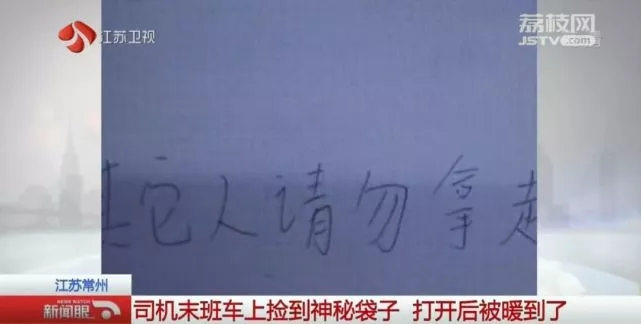 江苏卫视
荔枝网
JSTV.com
其它人请勿拿走
江苏常州
新闻眼
司机末班车上捡到神秘袋子 打开后被暖到了